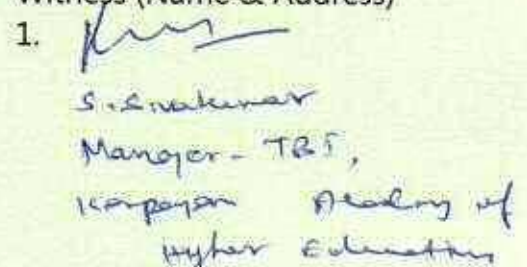 Witness (Name & Address)
1.
S. Sivakumar
Manager - TBI,
Karpagam Academy of
Higher Education